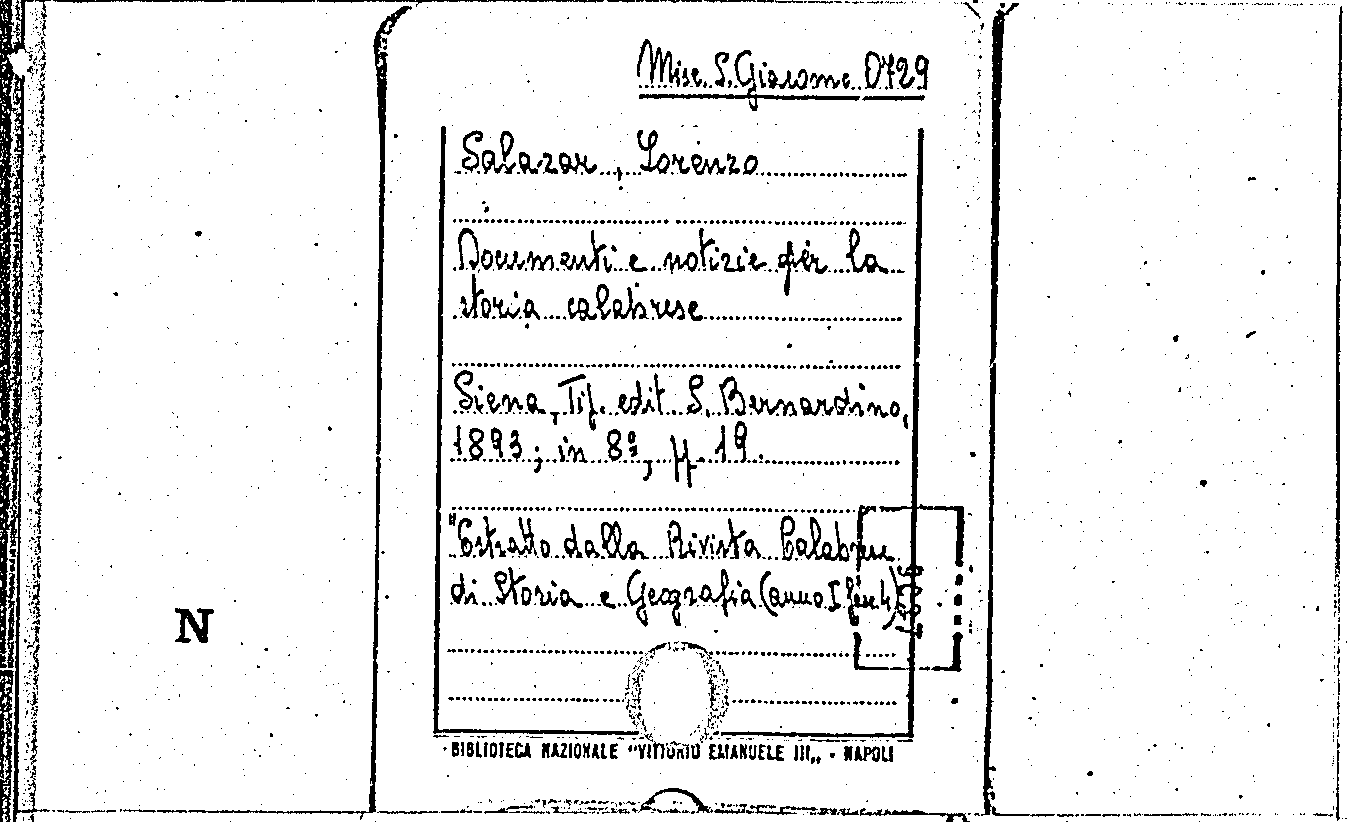 Misc. S. Giacomo D729
Salazar, Lorenzo
Documenti e notizie per la
storia calabrese
Siena, Tip. edit. S. Bernardino,
1893; in 8º, pp. 19.
"Estratto dalla Rivista Calabrese
di Storia e Geografia (anno I fasc 4)
N
BIBLIOTECA NAZIONALE "VITTORIO EMANUELE III„ - NAPOLI